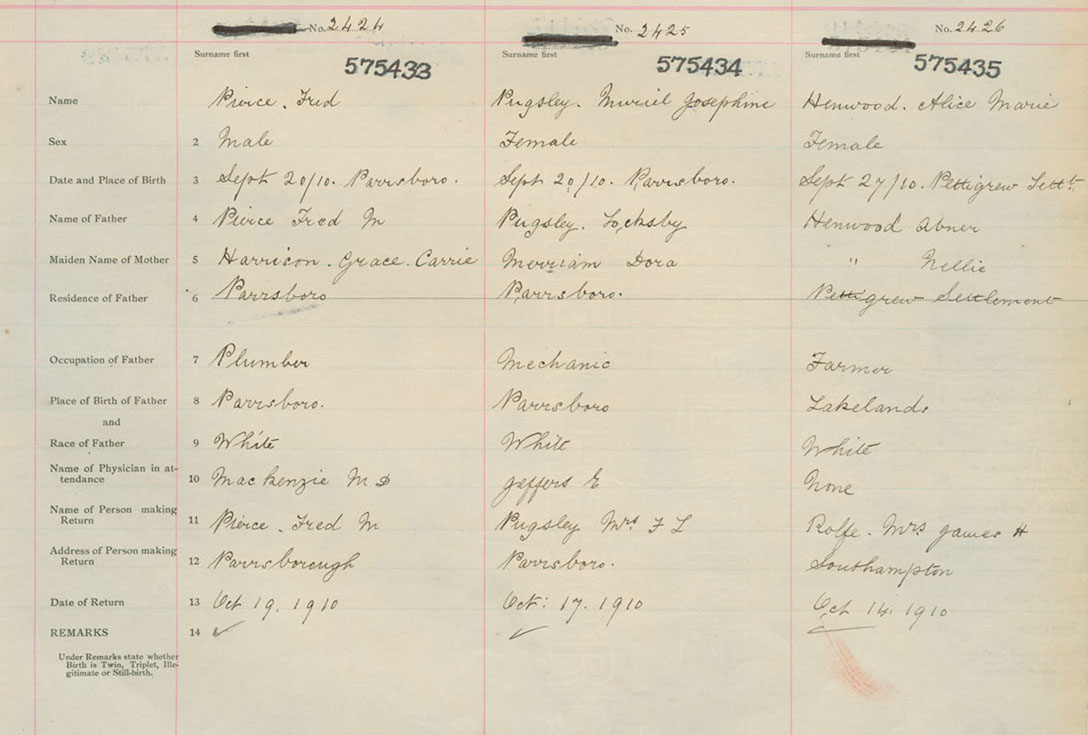 No. 2424 No. 2425 No. 2426
Surname first Surname first Surname first
575433 575434 575435
Name Pierce. Fred Pugsley. Muriel Josephine Henwood. Alice Marie
Sex 2 Male Female Female
Date and Place of Birth 3 Sept 20/10. Parrsboro. Sept 20/10. Parrsboro. Sept 27/10. Pettigrew Settt.
Name of Father 4 Pierce Fred M Pugsley. Locksby Henwood Abner
Maiden Name of Mother 5 Harrison. Grace. Carrie Merriam Dora " Nellie
Residence of Father 6 Parrsboro Parrsboro. Pettigrew Settlement
Occupation of Father 7 Plumber Mechanic Farmer
Place of Birth of Father 8 Parrsboro. Parrsboro Lakelands
and
Race of Father 9 White White White
Name of Physician in at-
tendance 10 MacKenzie M D Jeffers E None
Name of Person making
Return 11 Pierce. Fred M Pugsley Mrs F L Rolfe. Mrs James H
Address of Person making
Return 12 Parrsborough Parrsboro. Southampton
Date of Return 13 Oct 19. 1910 Oct: 17. 1910 Oct 14. 1910
REMARKS 14
Under Remarks state whether
Birth is Twin, Triplet, Ille-
gitimate or Still-birth.